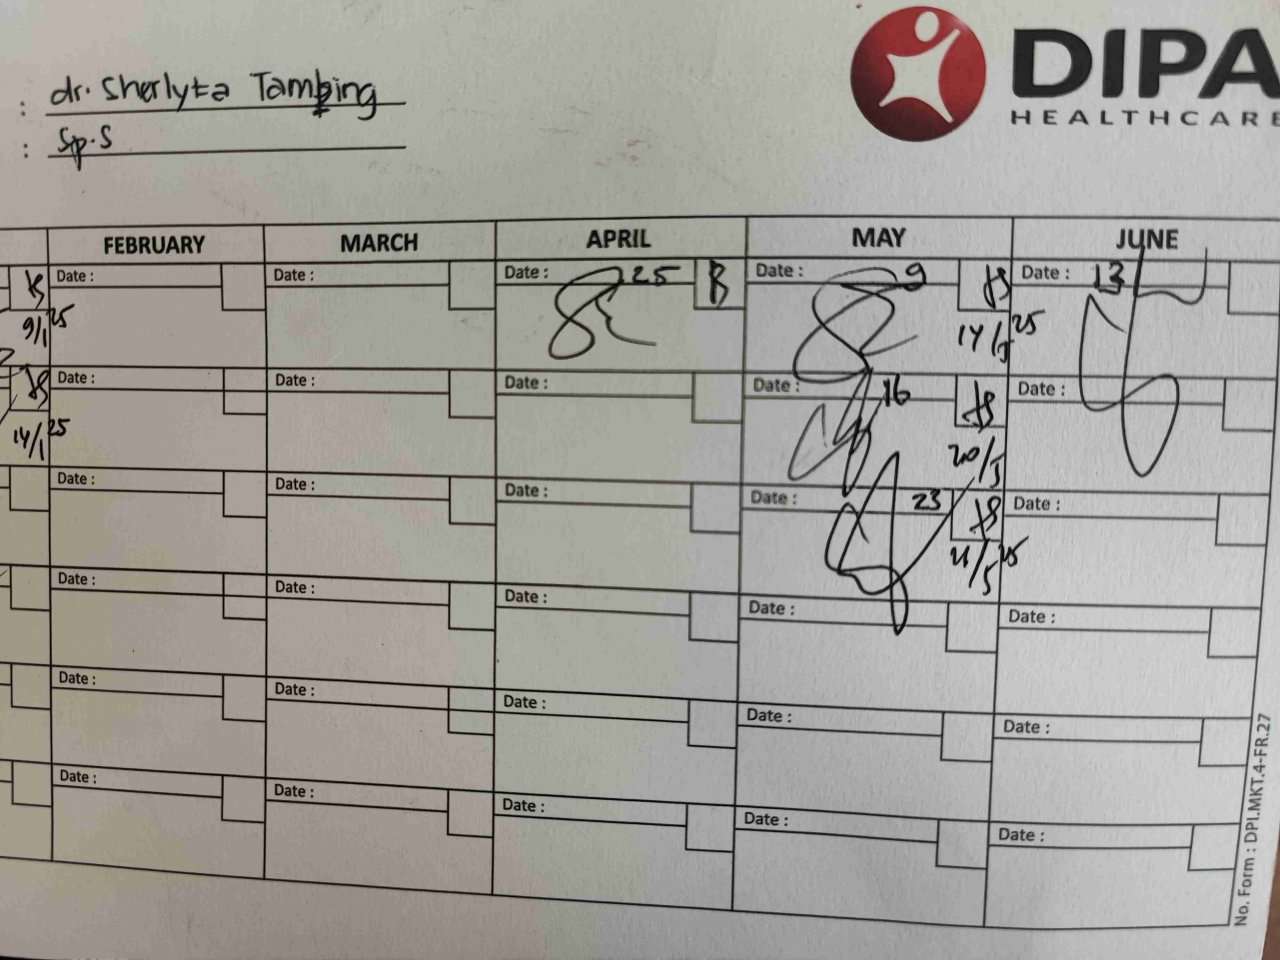 DIPA
HEALTHCARE
: dr. Sherlyta Tambing
: Sp.S
FEBRUARY MARCH APRIL MAY JUNE
Date : Date : Date : 25 Date : 9 Date : 13
9/1 25 14/5 25
Date : Date : Date : Date : 16 Date :
14/1 25 20/5
Date : Date : Date : Date : 23 Date :
21/5 25
Date : Date : Date : Date : Date :
Date : Date : Date : Date : Date :
Date : Date : Date : Date : Date :
No. Form : DPI.MKT.4-FR.27